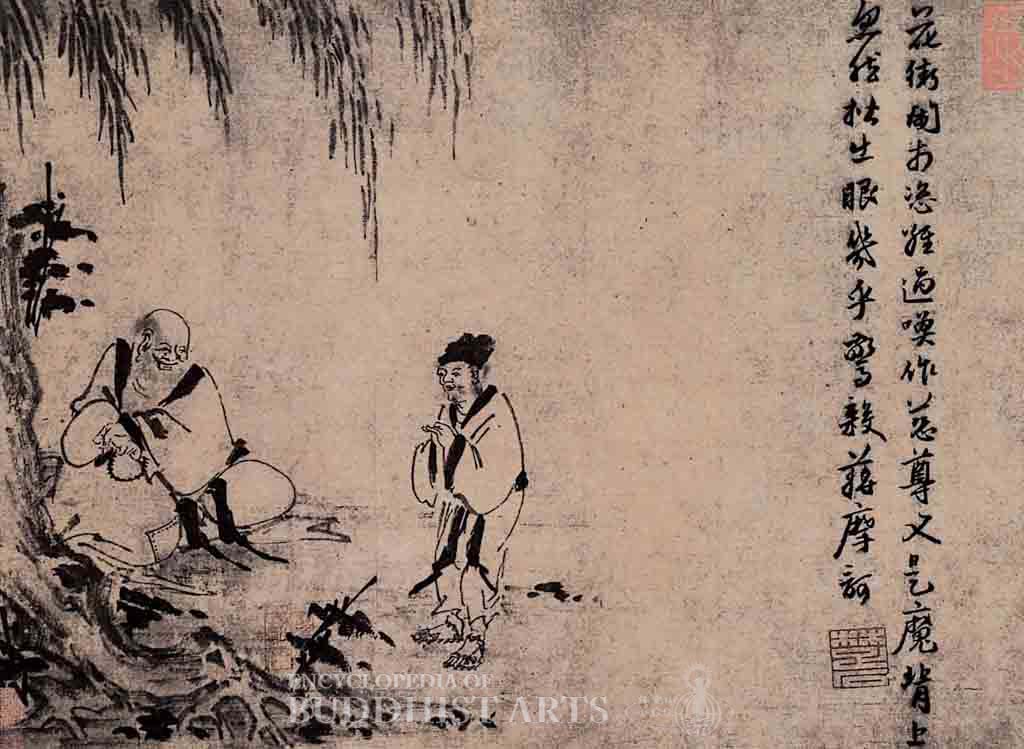 花街鬧市恣經過喚作慈尊又是魔背上
忽然眼幾乎驚殺蔣摩訶
ENCYCLOPEDIA OF
BUDDHIST ARTS